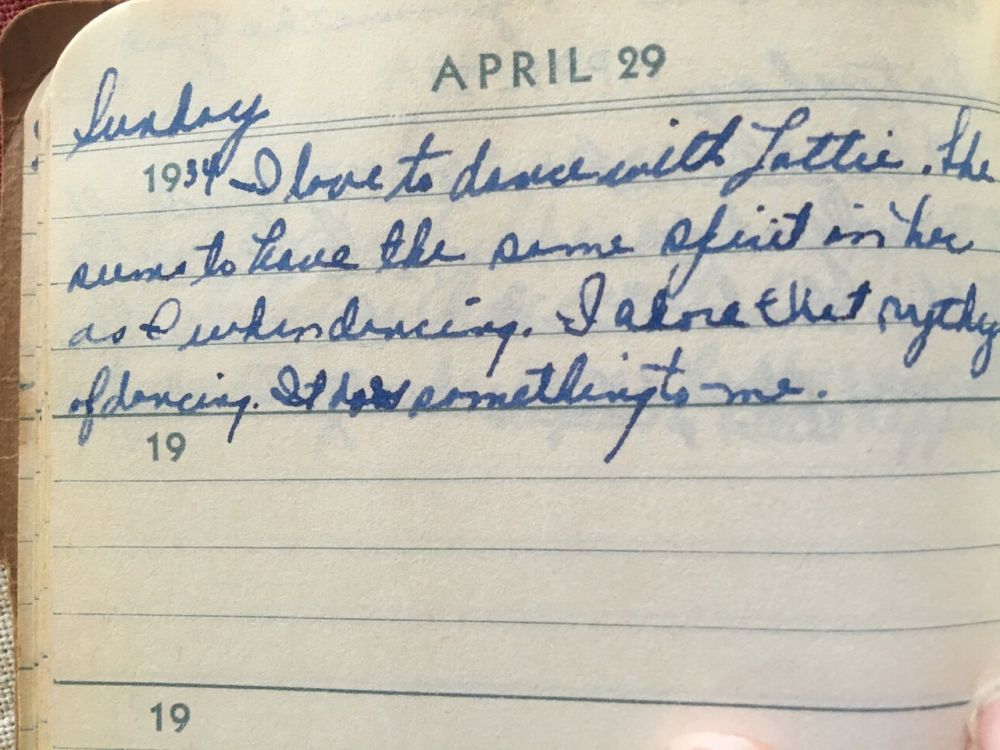 APRIL 29
Sunday
1934 I love to dance with Lottie. She
seems to have the same spirit in her
as I when dancing. I adore that
of dancing. It does something to me.
19
19